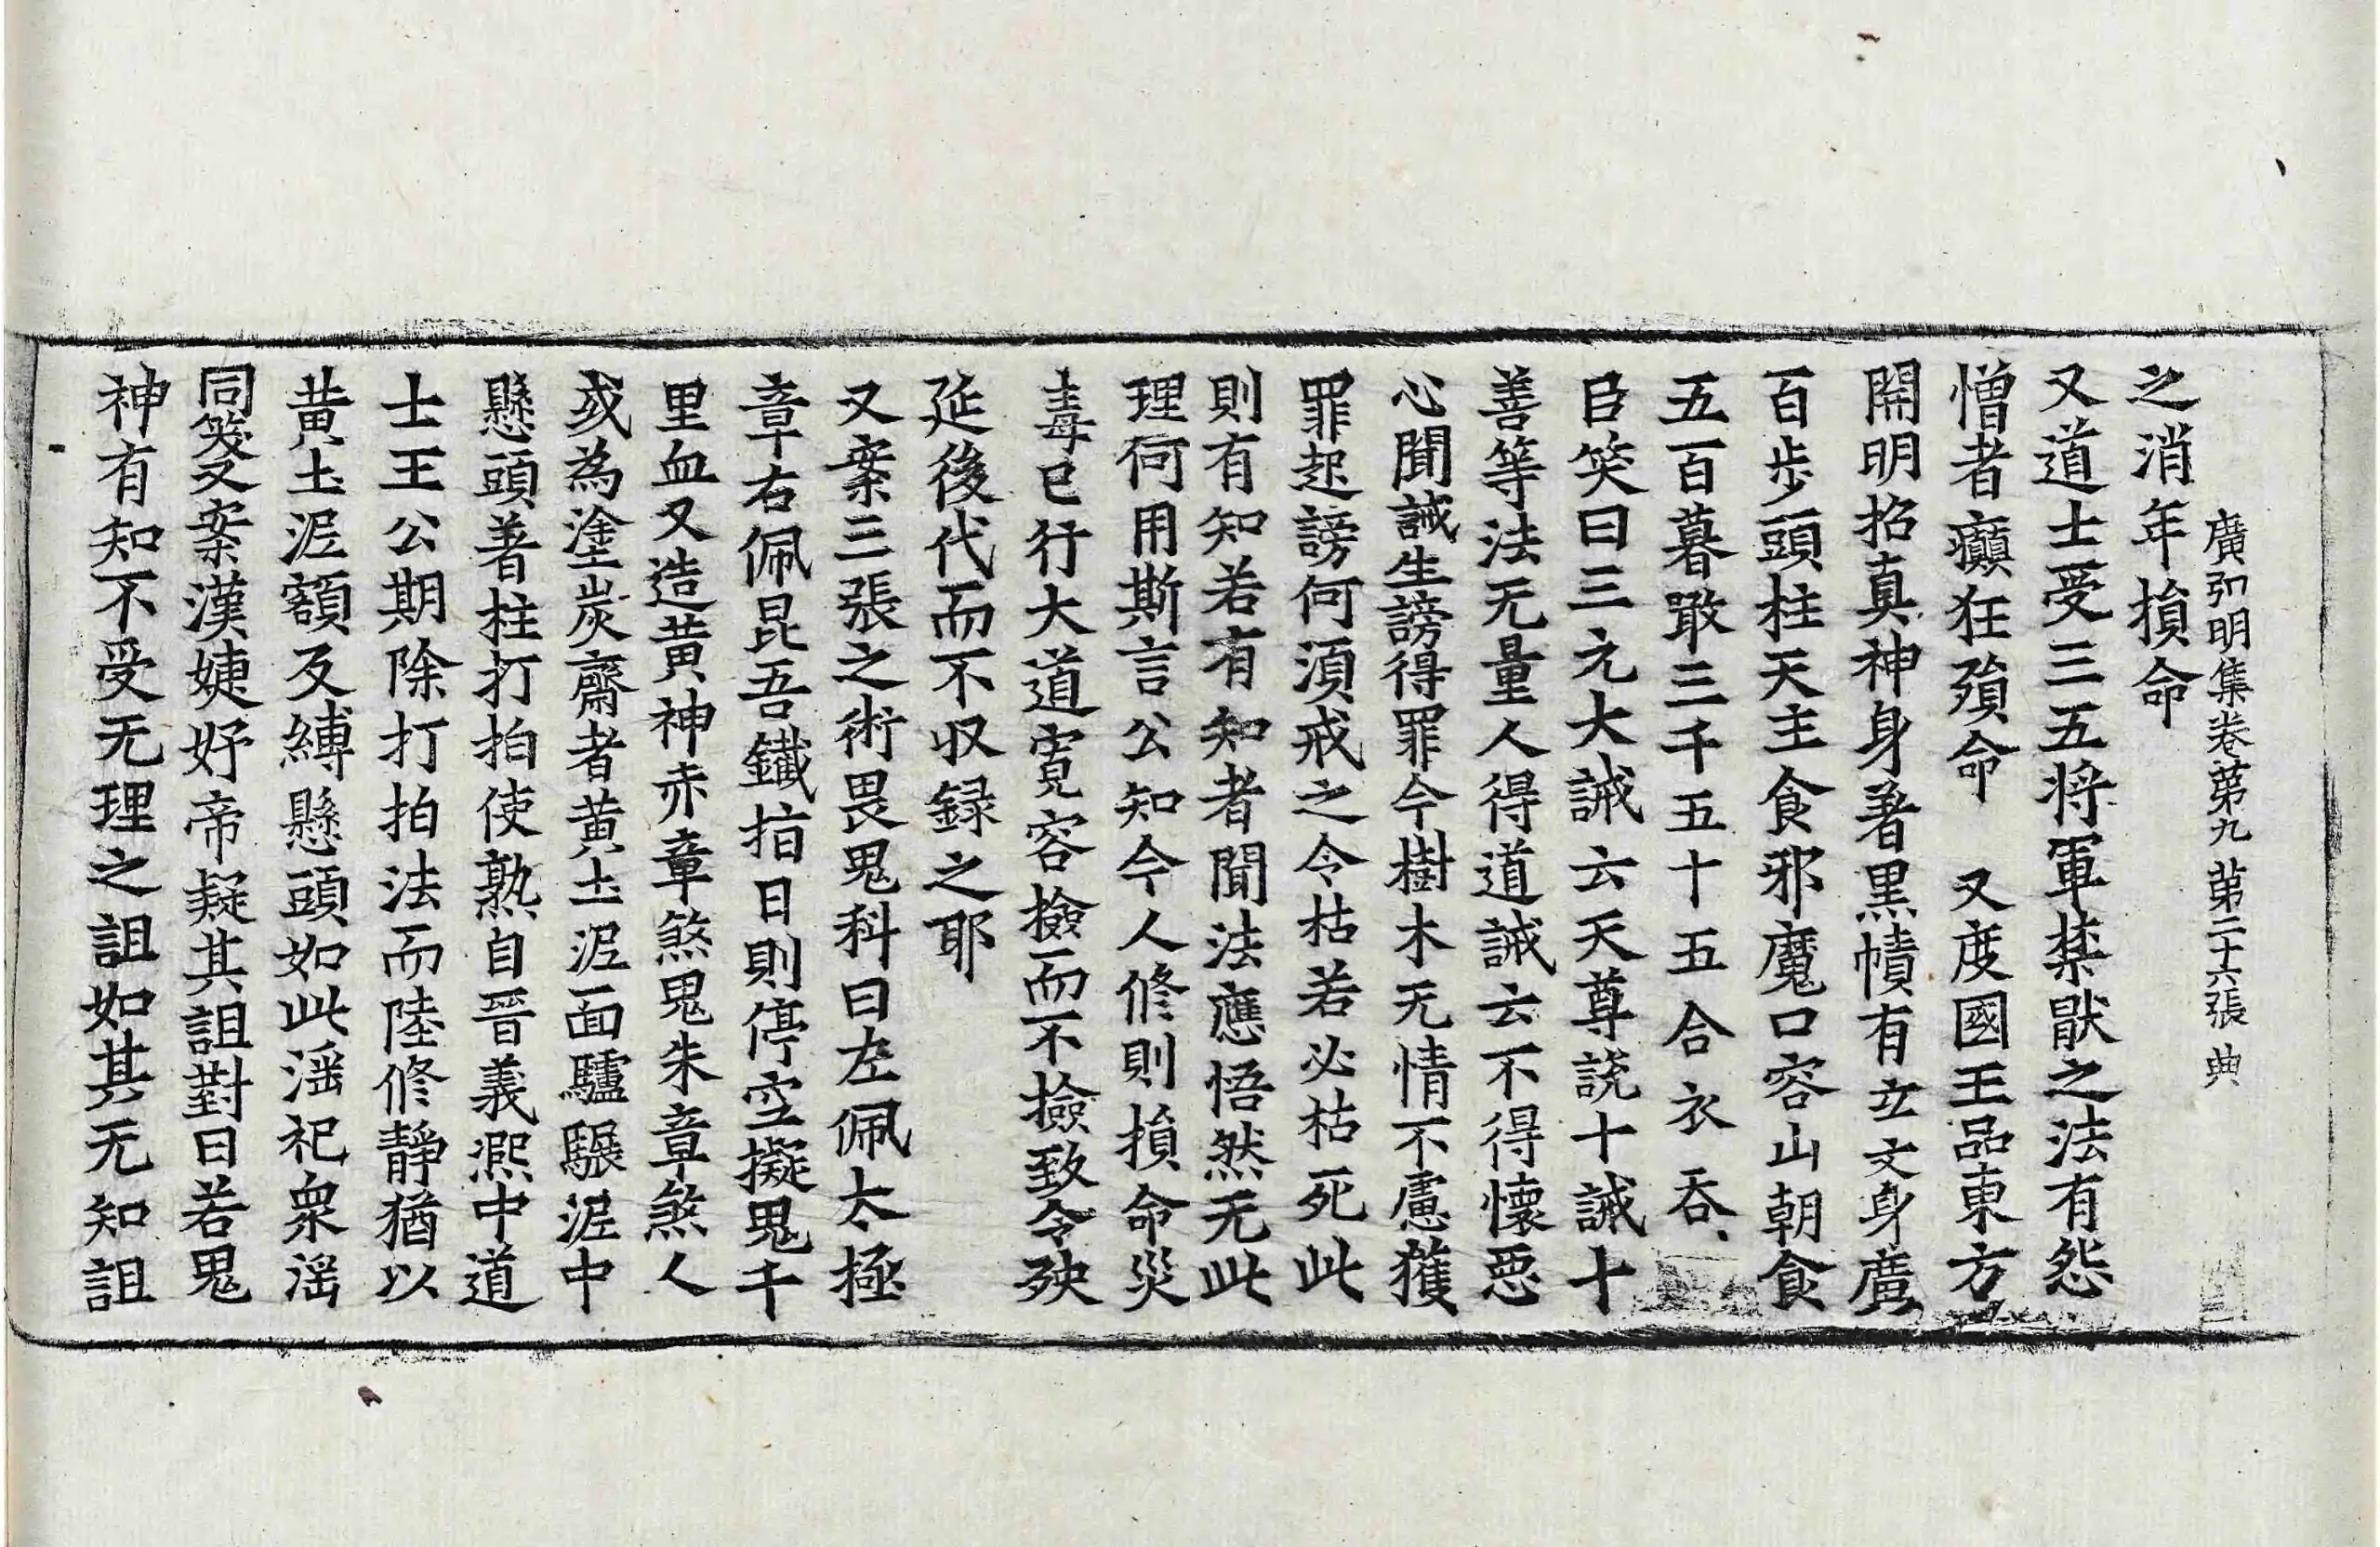 廣弘明集卷第九 第二十六張 典
之消年損命
又道士受三五將軍禁猒之法有怨
憎者癲狂殞命 又度國王品東方
開明招真神身著黑幘有立文身廣
百步頭柱天主食邪魔口容山朝食
五百暮噉三千五十五合衣吞
臣笑曰三元大誡云天尊說十誡十
善等法无量人得道誡云不得懷惡
心聞誡生謗得罪今樹木无情不慮獲
罪起謗何須戒之令枯若必枯死此
則有知若有知者聞法應悟然无此
理何用斯言公知今人修則損命災
毒已行大道寬容撿而不撿致令殃
延後代而不収録之耶
又案三張之術畏鬼科曰左佩太極
章右佩昆吾鐵指日則停空擬鬼千
里血又造黄神赤章煞鬼朱章煞人
或為塗炭齋者黄土泥面驢騾泥中
懸頭著柱打拍使熟自晉義熙中道
士王公期除打拍法而陸修靜猶以
黄土泥額反縛懸頭如此淫祀衆淫
同笑又案漢婕妤帝疑其詛對曰若鬼
神有知不受无理之詛如其无知詛